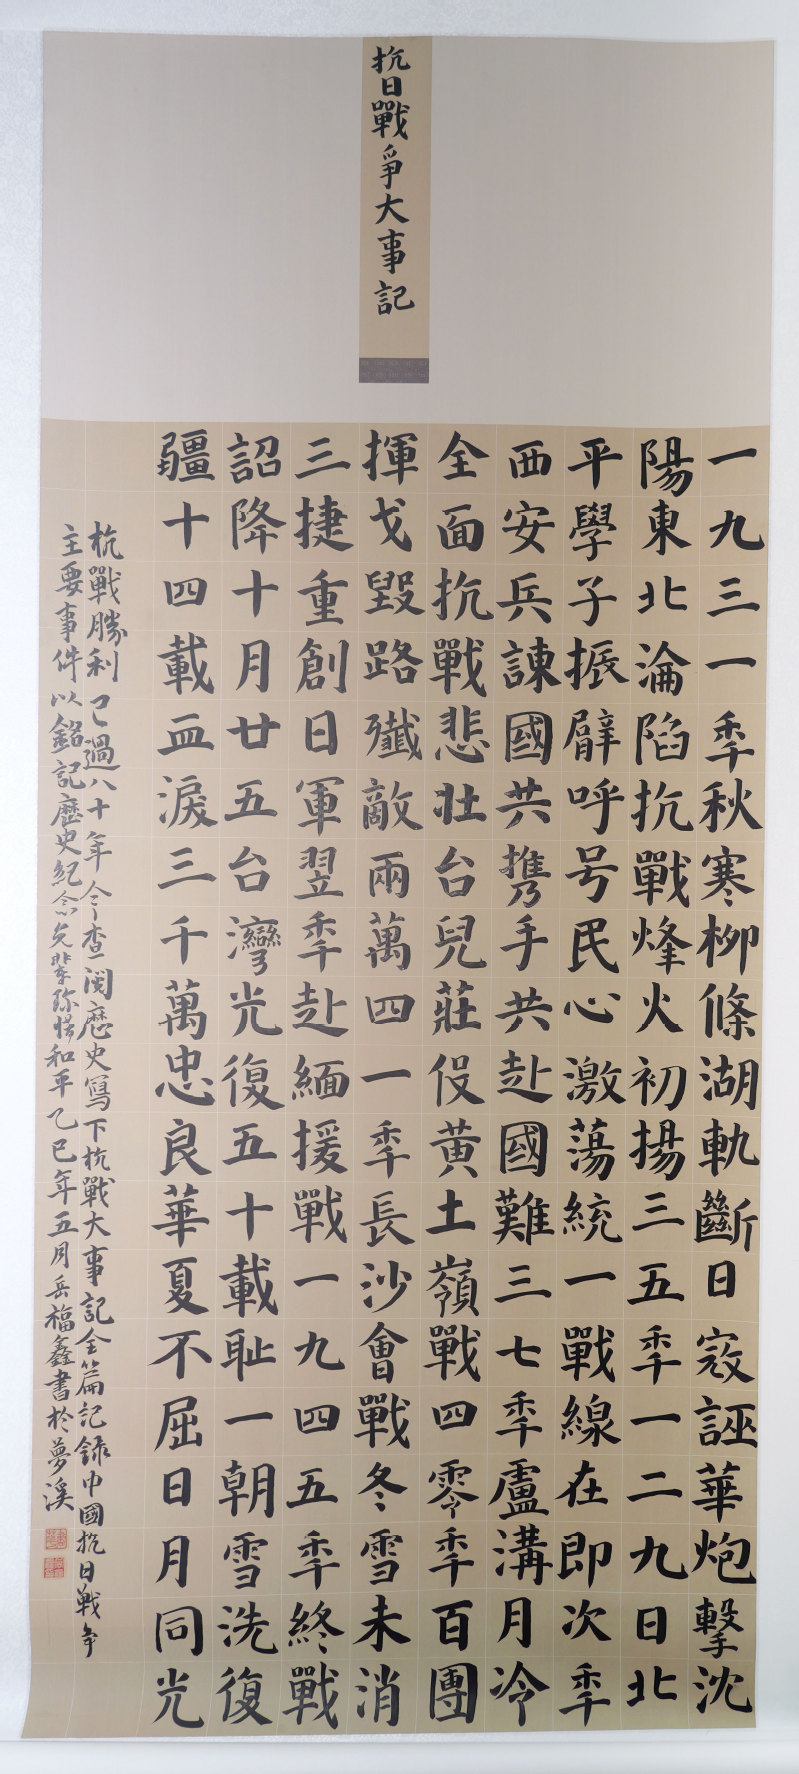 抗日戰爭大事記
一九三一秊秋寒柳條湖軌斷日寇誣華炮擊沈
陽東北淪陷抗戰烽火初揚三五秊一二九日北
平學子振臂呼号民心激蕩統一戰線在即次秊
西安兵諫國共攜手共赴國難三七秊盧溝月冷
全面抗戰悲壯台兒莊役黃土嶺戰四零秊百團
揮戈毀路殲敵兩萬四一秊長沙會戰冬雪未消
三捷重創日軍翌秊赴緬援戰一九四五秊終戰
詔降十月廿五台灣光復五十載耻一朝雪洗復
疆十四載血淚三千萬忠良華夏不屈日月同光
抗戰勝利已過八十年今查閱歷史寫下抗戰大事記全篇記錄中國抗日戰爭
主要事件以銘記歷史紀念先輩珍惜和平乙巳年五月岳福鑫書於夢溪